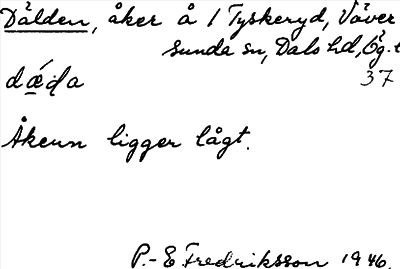 Dälden, åker å 1 Tyskeryd, Väver
sunda sn, Dals hd, Ög.
37
Åkern ligger lågt.
P.-E Fredriksson 1946.